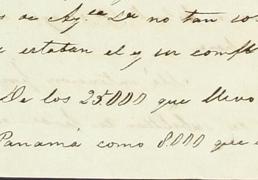 s de Ay.ca De no tan so
estaban el y un comp
De los 25.000 que llevo
Panamá como 8.000 que